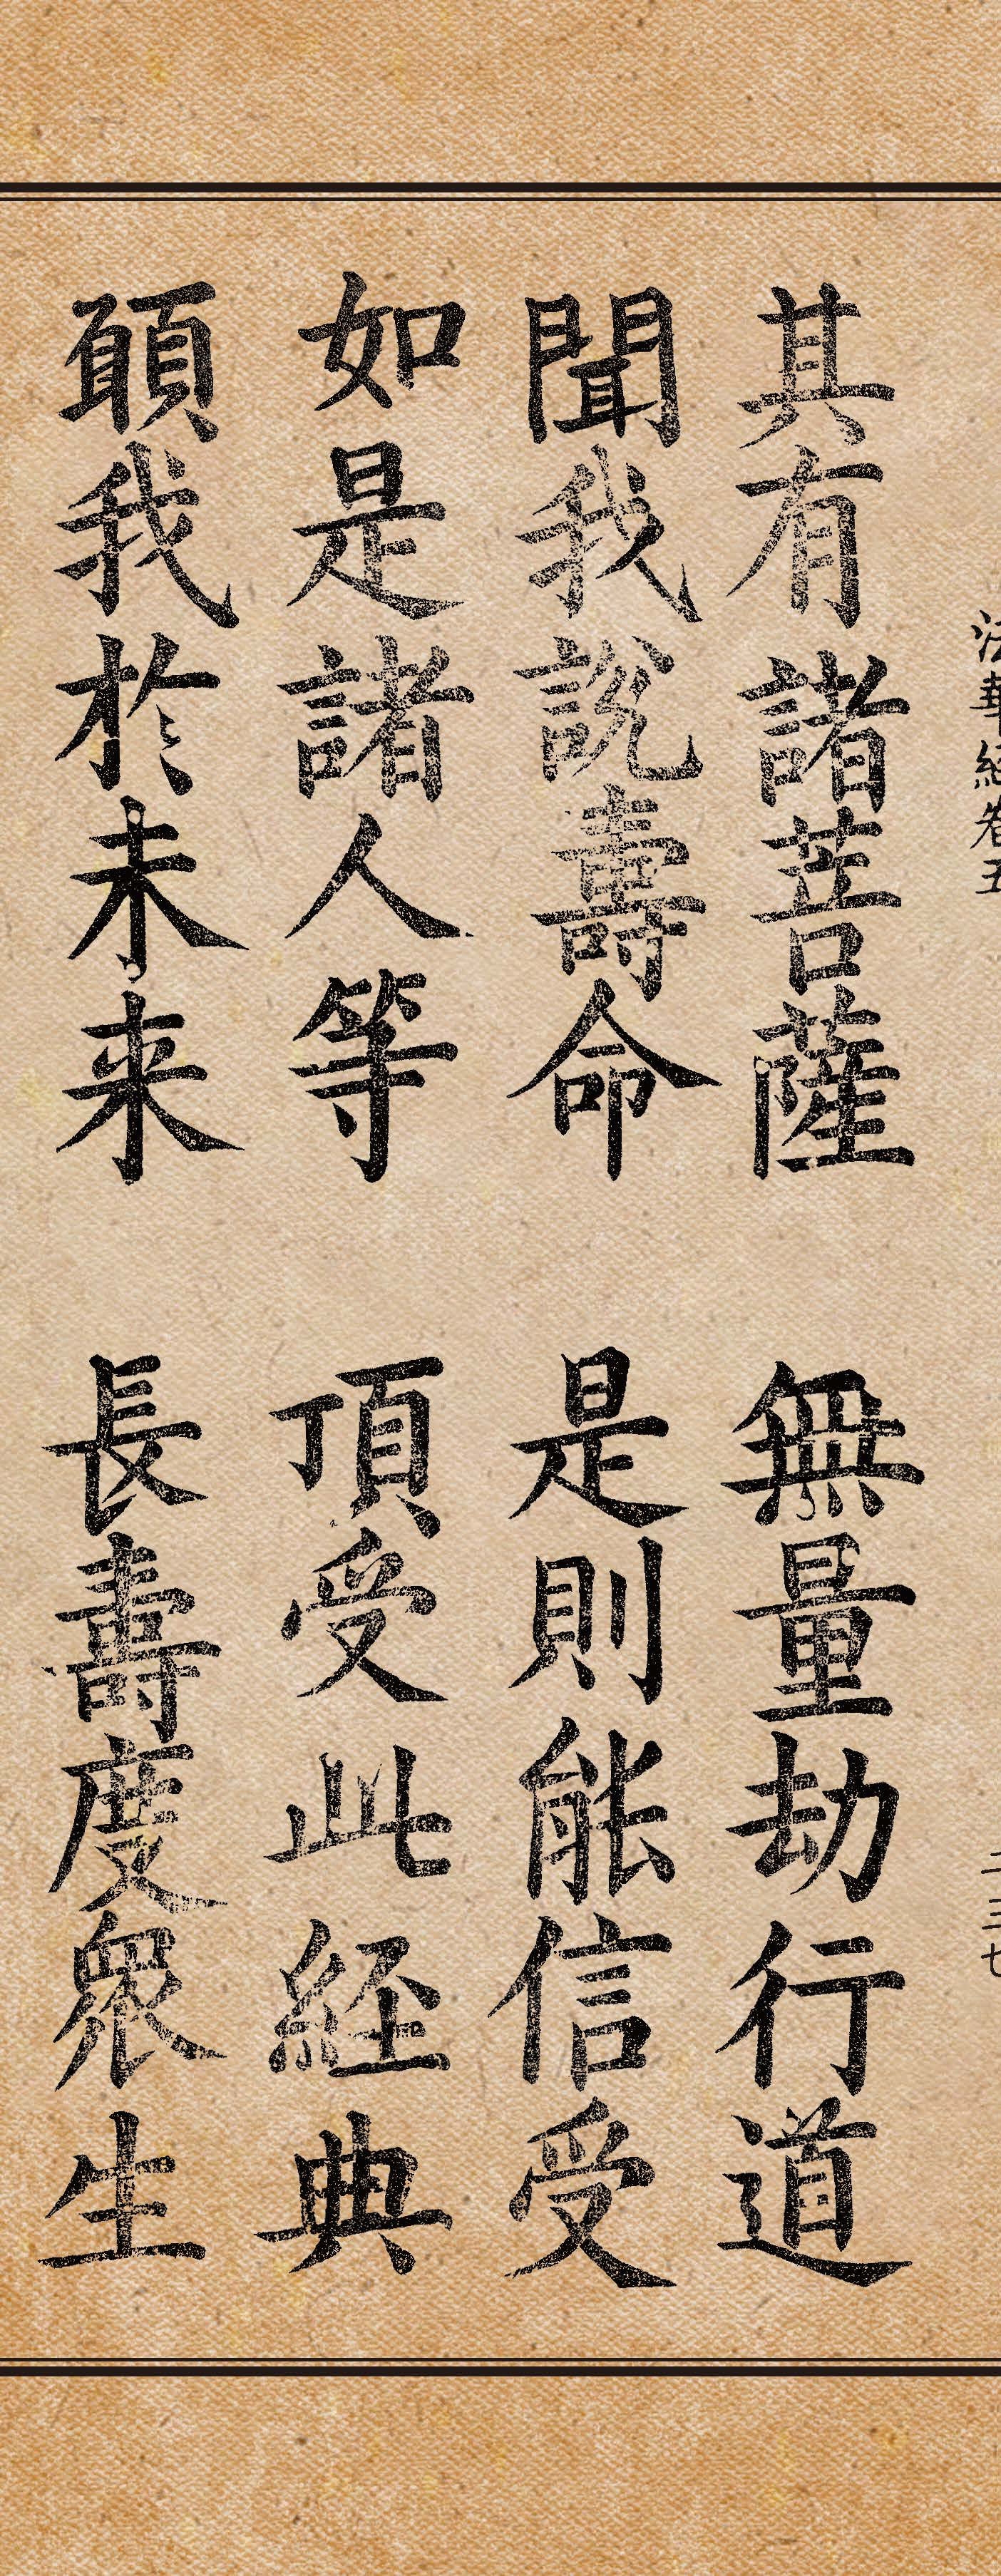 法華經卷五
二三七
其有諸菩薩 無量劫行道
聞我說壽命 是則能信受
如是諸人等 頂受此經典
願我於未来 長壽度眾生